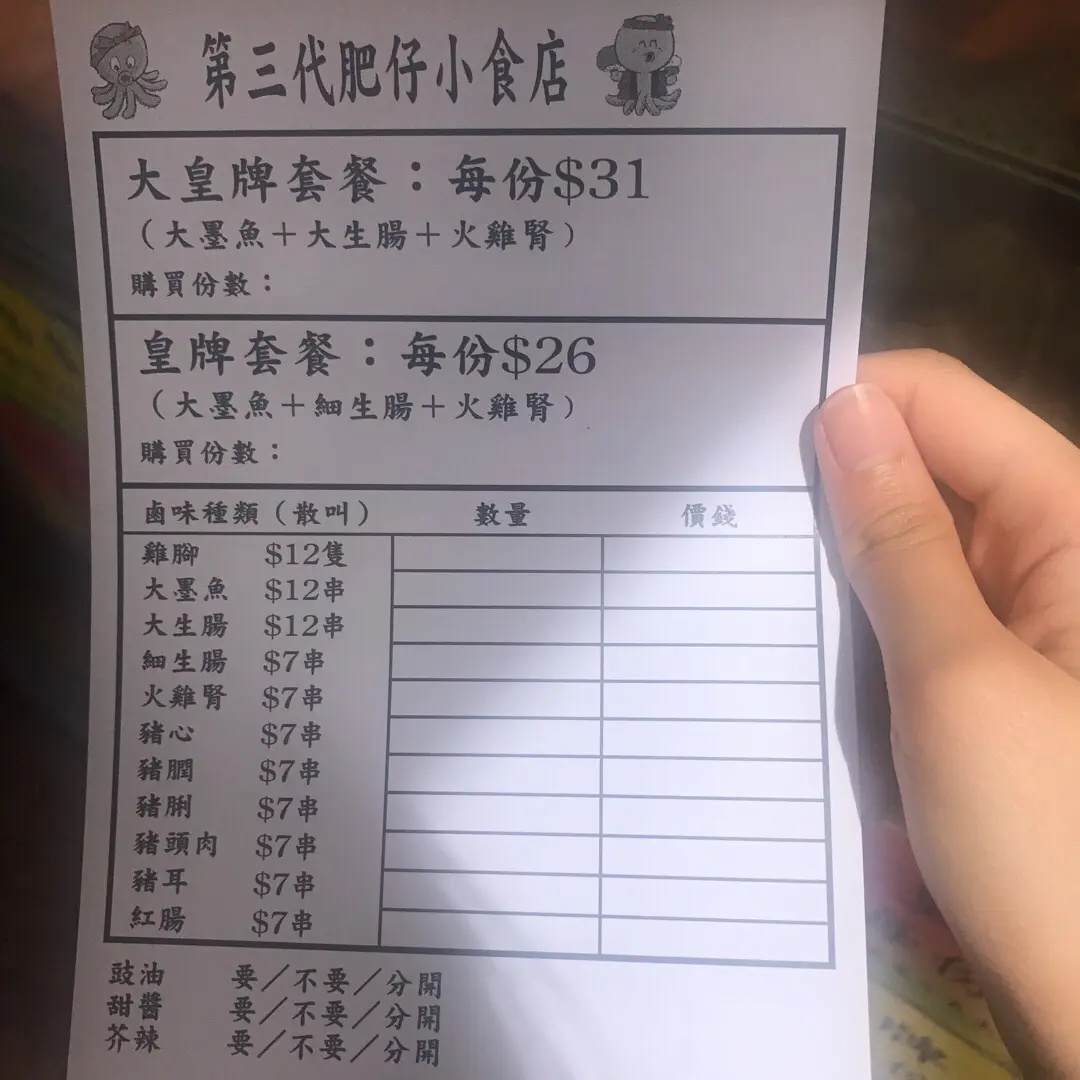 第三代肥仔小食店
大皇牌套餐：每份$31
（大墨魚＋大生腸＋火雞腎）
購買份數：
皇牌套餐：每份$26
（大墨魚＋細生腸＋火雞腎）
購買份數：
鹵味種類（散叫） 數量 價錢
雞腳 $12隻
大墨魚 $12串
大生腸 $12串
細生腸 $7串
火雞腎 $7串
豬心 $7串
豬膶 $7串
豬脷 $7串
豬頭肉 $7串
豬耳 $7串
紅腸 $7串
豉油 要／不要／分開
甜醬 要／不要／分開
芥辣 要／不要／分開